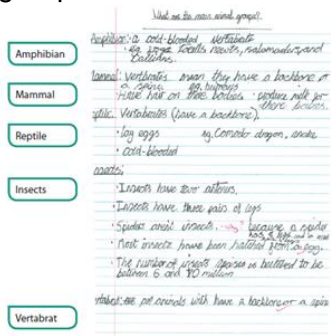 What are the main animal groups?
Amphibian
Amphibian: a cold-blooded vertebrate
eg. frogs toads newts, salamanders, and
Mammal
Vertebrates mean they have a backbone or
a spine eg. humans
Have hair on their bodies produce milk for
there babies.
Reptile
Vertebrates (have a backbone).
lay eggs eg. Comodor dragon, snake
cold-blooded
Insects
Insects have two
Insects have three pairs of legs
Spiders arent insects because a spider
Most insects have been hatched from a egg.
The number of insects species is believed to be
between 6 and 10 million
Vertebrat
animals with have a backbone or a spine